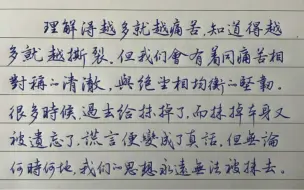 理解得越多就越痛苦,知道得越
多就越撕裂。但我們會有着同痛苦相
對稱的清澈,與絕望相均衡的堅韌。
很多時候,過去給抹掉了,而抹掉本身又
被遺忘了,謊言便變成了真話。但無論
何時何地,我們的思想永遠無法被抹去。